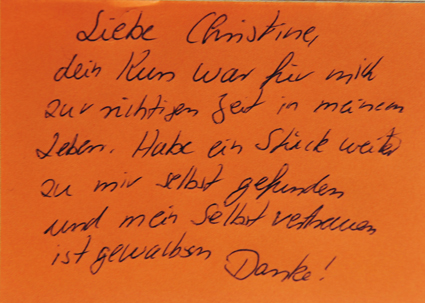 Liebe Christine,
dein Kurs war für mich
zur richtigen Zeit in meinem
Leben. Habe ein Stück weiter
zu mir selbst gefunden
und mein Selbstvertrauen
ist gewachsen Danke!